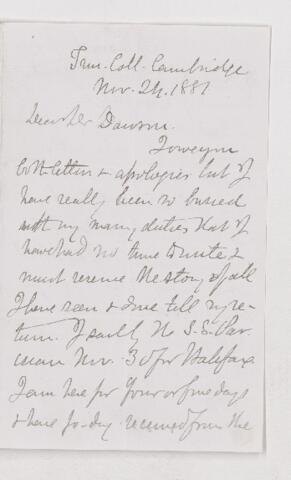 Trin. Coll. Cambridge
Nov. 24. 1881
Dear Mr Dawson.
I owe you
both letters & apologies but I
have really been so busied
with my many duties that I
have had no time to write &
must reserve the story of all
I have seen & done till my re-
turn. I sail by the S.S. Par-
isian Nov. 30 for Halifax
I am here for four or five days
& have to-day received from the